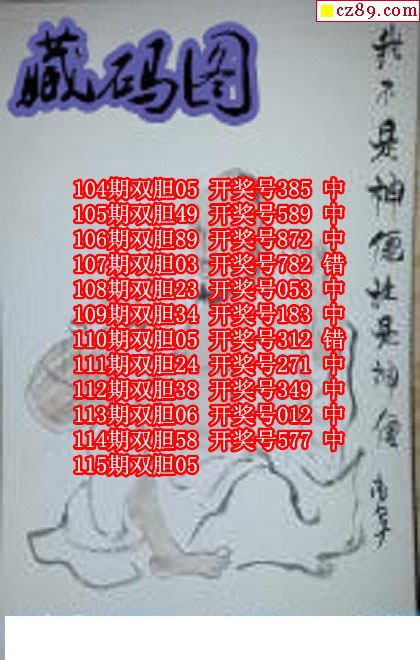 cz89.com
藏码图
104期双胆05 开奖号385 中
105期双胆49 开奖号589 中
106期双胆89 开奖号872 中
107期双胆03 开奖号782 错
108期双胆23 开奖号053 中
109期双胆34 开奖号183 中
110期双胆05 开奖号312 错
111期双胆24 开奖号271 中
112期双胆38 开奖号349 中
113期双胆06 开奖号012 中
114期双胆58 开奖号577 中
115期双胆05
我不是神仙就是神仙